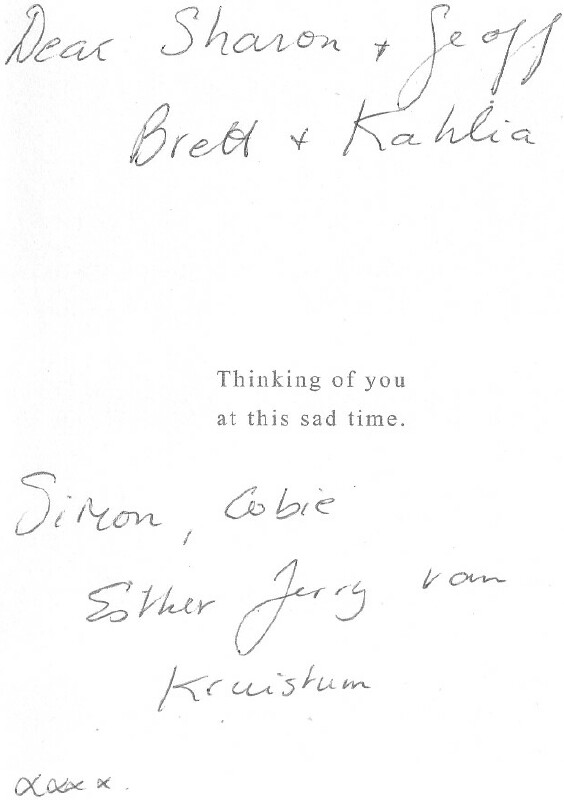 Dear Sharon + Geoff
Brett + Kahlia
Thinking of you
at this sad time.
Simon, Cobie
Esther Jerry van
Kruistum
xxxx.